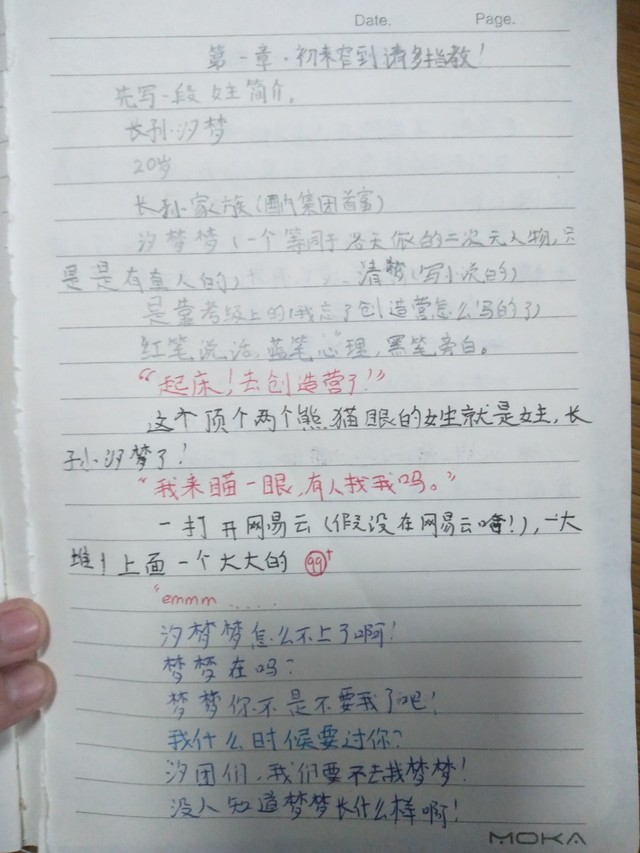 Date. Page.
第一章·初来窄到请多指教!
先写一段女主简介。
长孙·汐梦
20岁
长孙·家族(集团首富)
汐梦梦(一个等同于洛天依的二次元人物,只
是是有真人的) 清梦(写小说的)
是靠考级上的(我忘了创造营怎么写的了)
红笔说话,蓝笔心理,黑笔旁白。
“起床!去创造营了!”
这个顶个两个熊猫眼的女生就是女主,长
孙·汐梦了!
“我来瞄一眼,有人找我吗。”
一打开网易云(假设在网易云嗷!),一大
堆!上面一个大大的 99+
“emmm ......
汐梦梦怎么不上了啊!
梦梦在吗?
梦梦你不是不要我了吧!
我什么时候要过你?
汐团们,我们要不去找梦梦!
没人知道梦梦长什么样啊!
MOKA